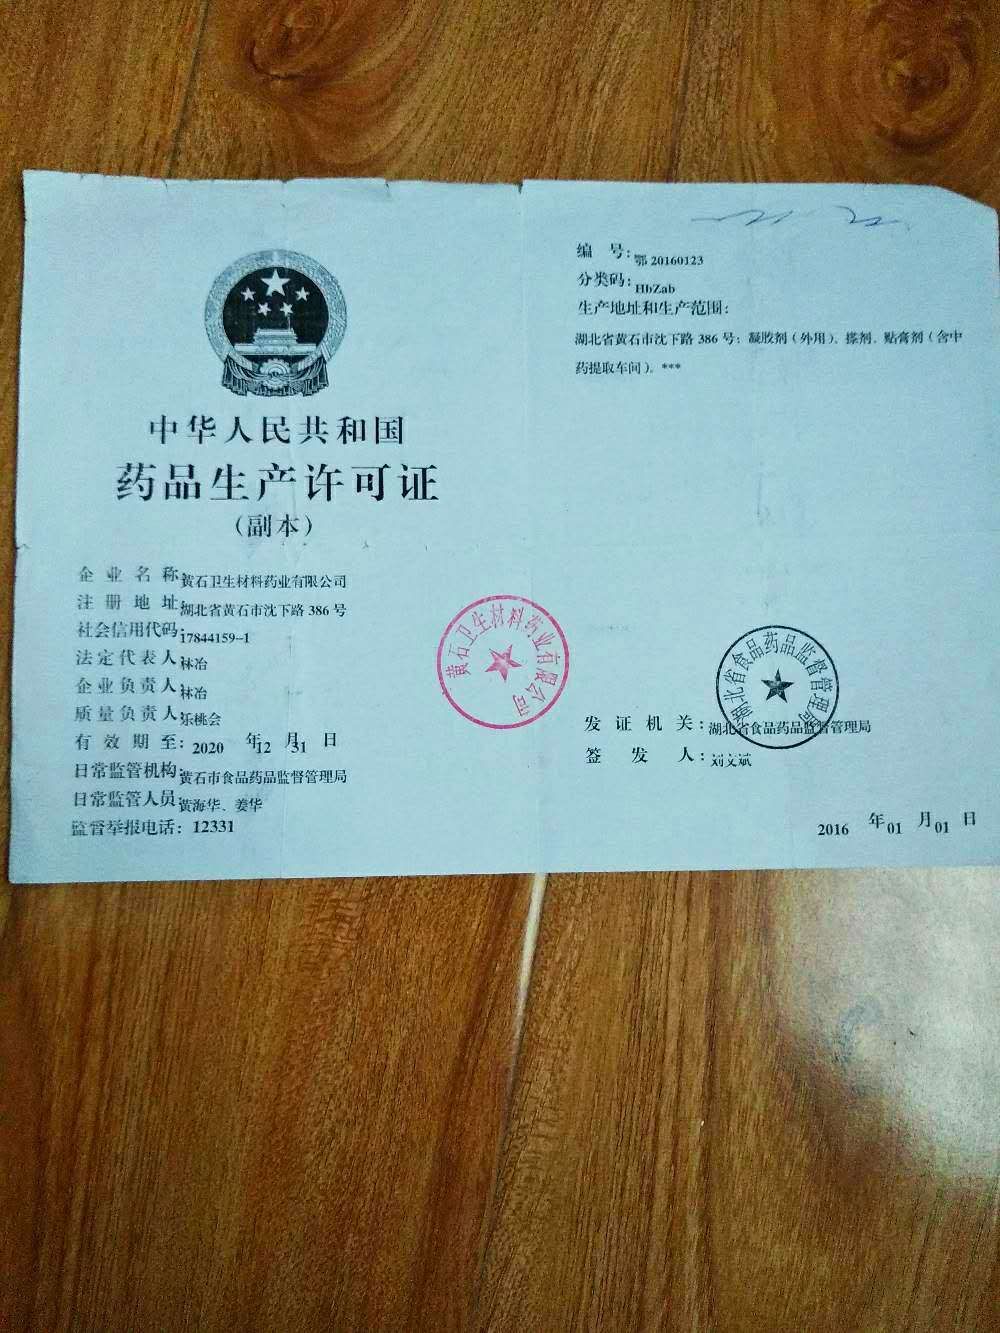 中华人民共和国
药品生产许可证
（副本）
企业名称：黄石卫生材料药业有限公司
注册地址：湖北省黄石市沈下路 386 号
社会信用代码：17844159-1
法定代表人：林冶
企业负责人：林冶
质量负责人：乐桃会
有效期至：2020 年 12 月 31 日
日常监管机构：黄石市食品药品监督管理局
日常监管人员：黄海华、姜华
监督举报电话：12331
黄石卫生材料药业有限公司
编号：鄂 20160123
分类码：HbZab
生产地址和生产范围：
湖北省黄石市沈下路 386 号：凝胶剂（外用）、搽剂、贴膏剂（含中
药提取车间）。***
湖北省食品药品监督管理局
发证机关：湖北省食品药品监督管理局
签发人：刘文斌
2016 年 01 月 01 日